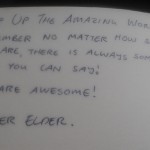 UP THE AMAZING WOR
MBER NO MATTER HOW S
ARE, THERE IS ALWAYS SOM
YOU CAN SAY!
ARE AWESOME!
ER ELDER.